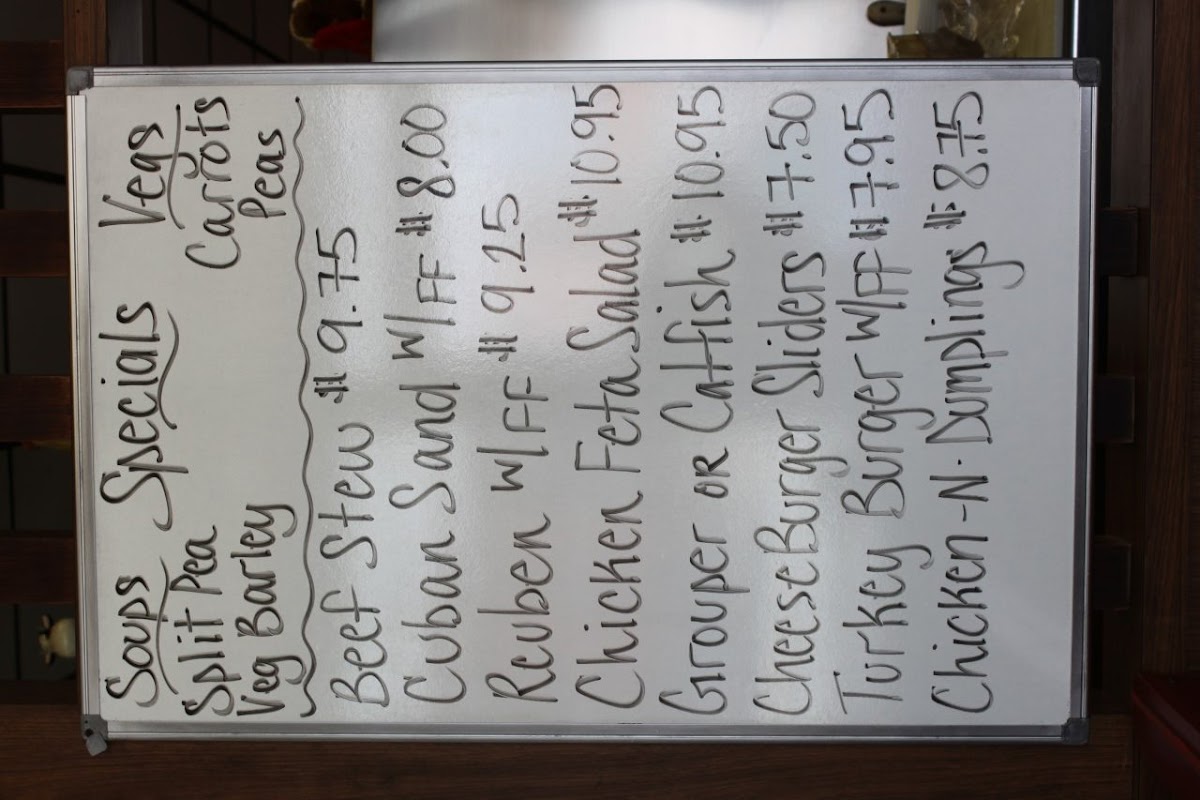 Soups Specials Vegs
Split Pea Carrots
Veg Barley Peas
Beef Stew $ 9.75
Cuban Sand w/FF $ 8.00
Reuben w/FF $ 9.25
Chicken Feta Salad $ 10.95
Grouper OR Catfish $ 10.95
CheeseBurger Sliders $ 7.50
Turkey Burger w/FF $ 7.95
Chicken-N-Dumplings $ 8.75